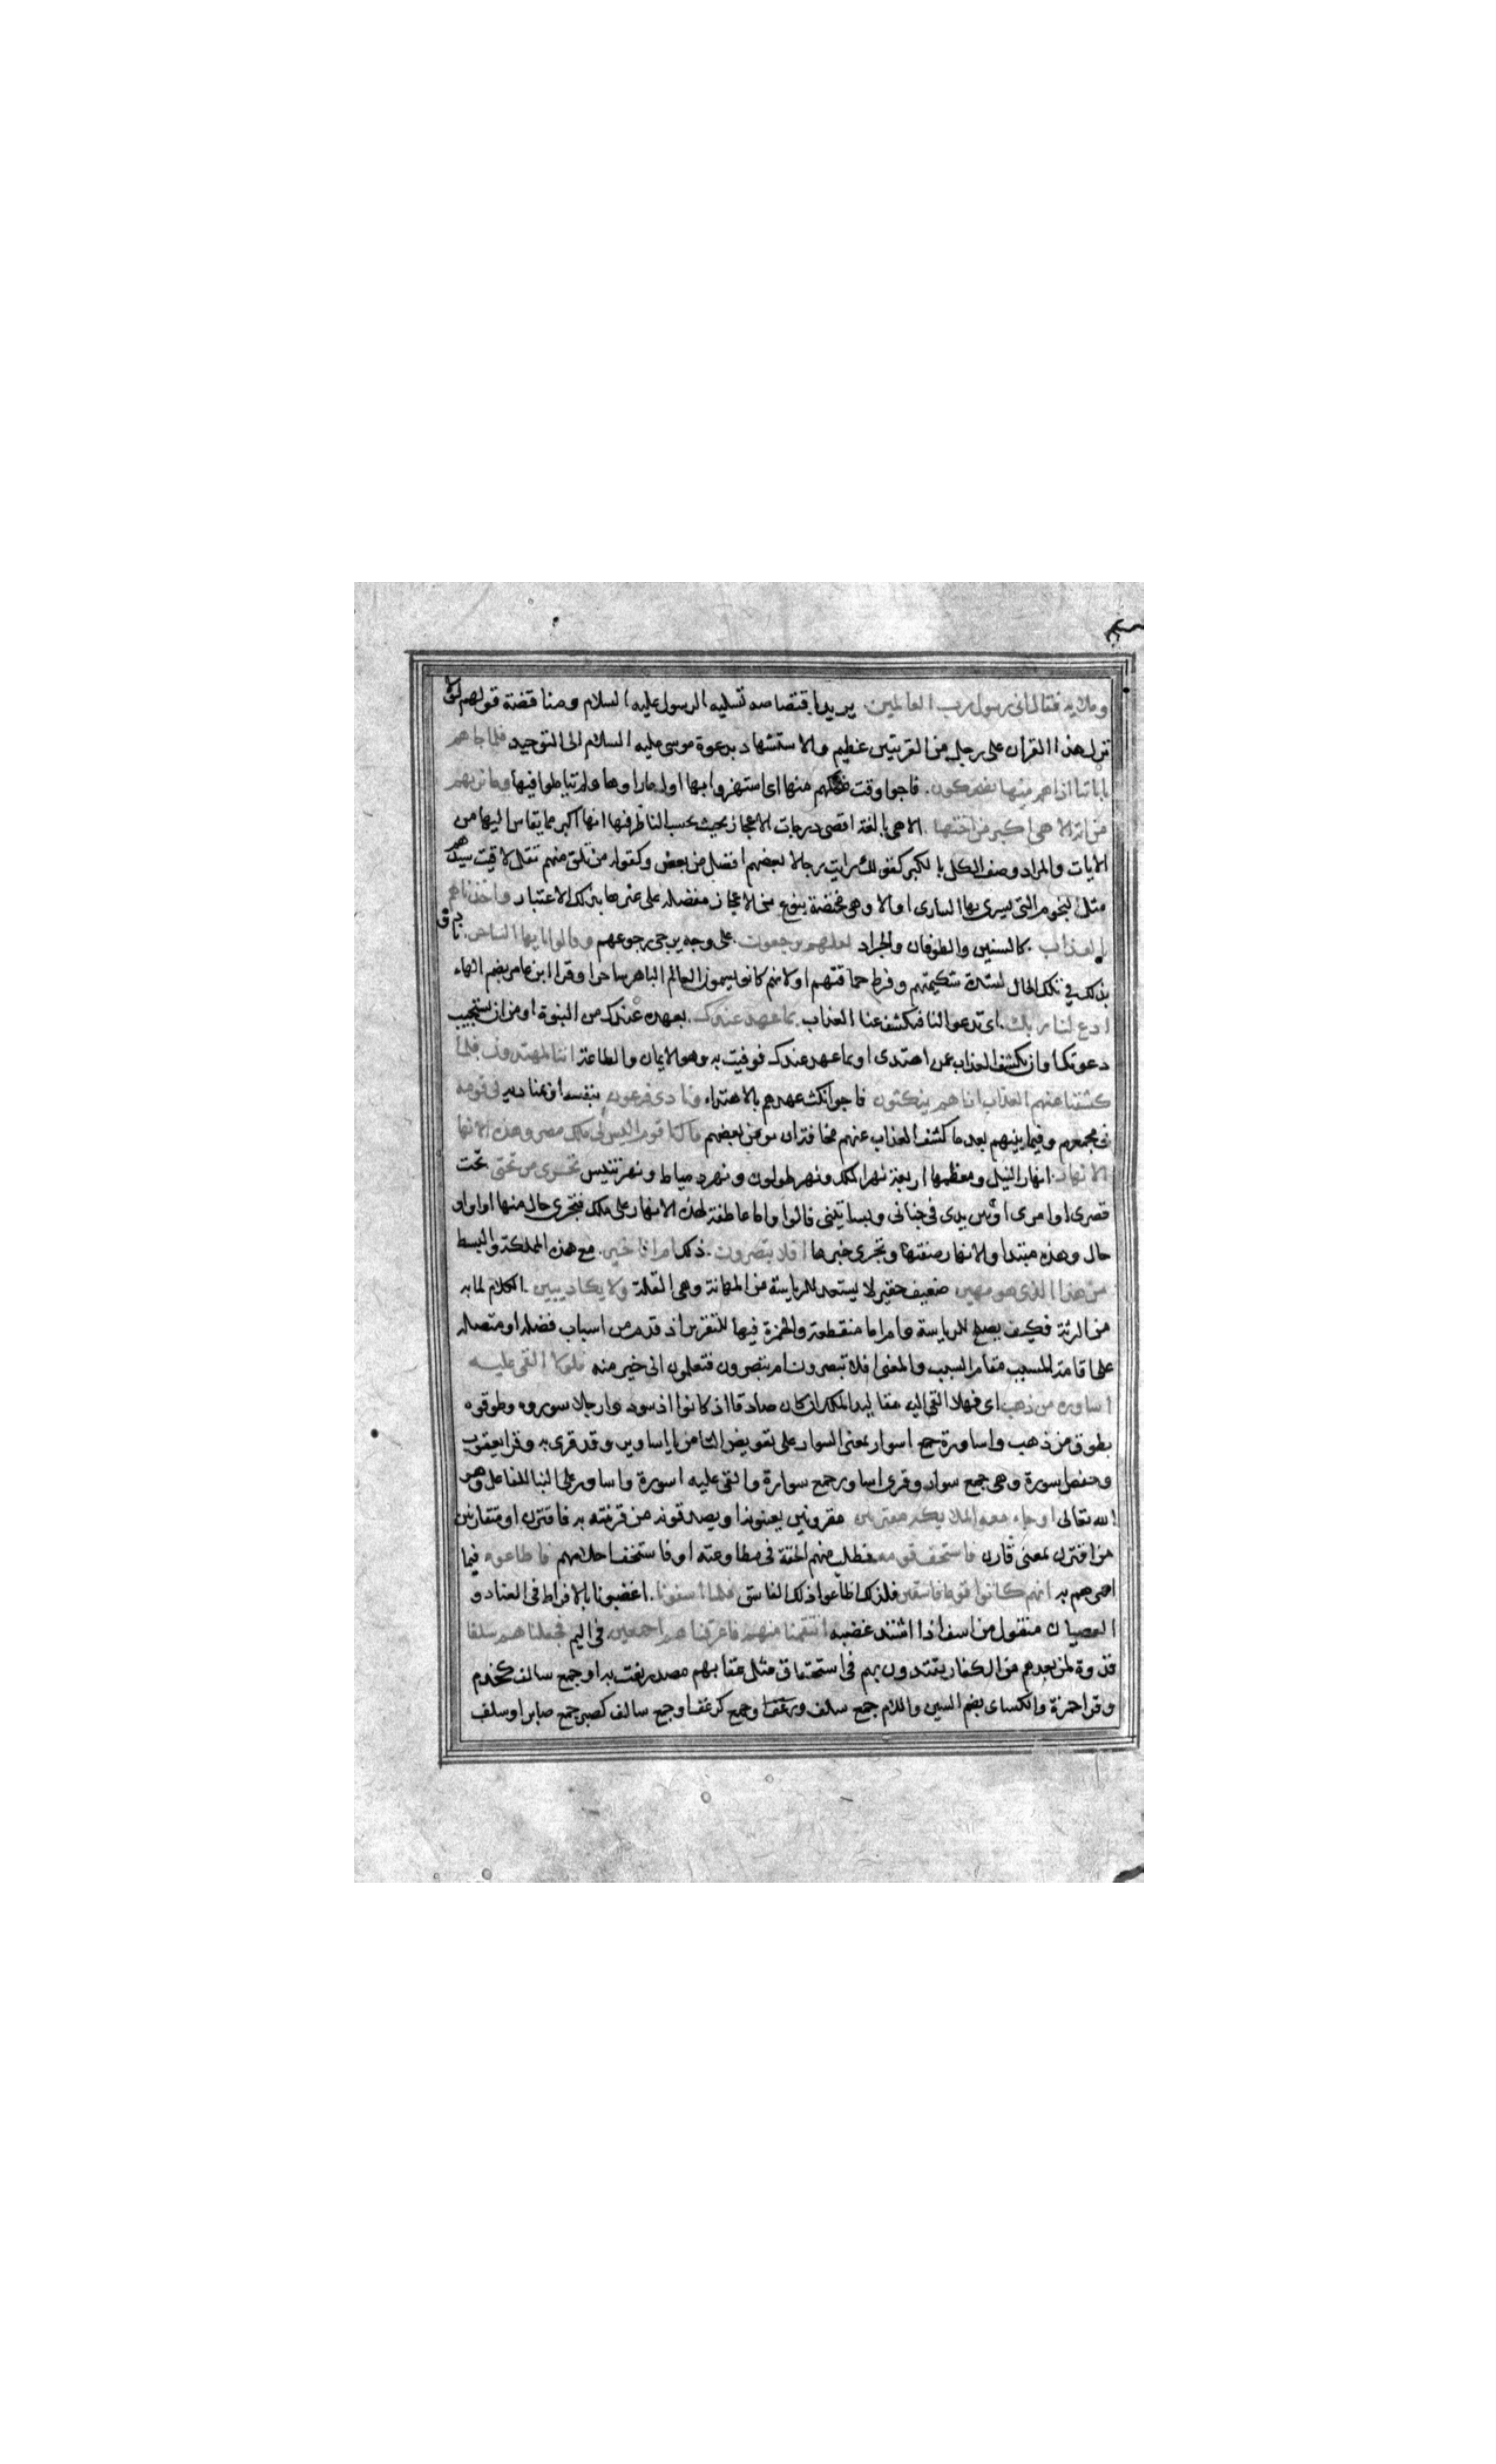 وملايه فقال انى رسول رب العالمين يريد باقتصاصه تسليه الرسول عليه السلام ومناقضة قولهم لولا
نزل هذا القرآن على رجل من القريتين عظيم والاستشهاد بدعوة موسى عليه السلام الى التوحيد فلما جاهم
باياتنا اذا هم منها يضحكون فاجوا وقت ضحكهم منها اى استهزوا بها اول ما راوها ولم يتاملوا فيها وما نريهم
من اية الا هى اكبر من اختها الا هى بالغة اقصى درجات الاعجاز بحيث يحسب الناظر فيها انها اكبر مما يقاس اليها من
الايات والمراد وصف الكل بالكبر كقولك رايت رجالا بعضهم افضل من بعض وكقوله من تلق منهم تقل لاقيت سيدهم
مثل النجوم التى يسرى بها السارى اولا وهى مختصة بنوع من الاعجاز مفضله على غيرها بذلك الاعتبار واخذناهم
بالعذاب كالسنين والطوفان والجراد لعلهم يرجعون على وجه يرجى رجوعهم وقالوا يا ايها الساحر نادوه
بذلك في تلك الحال لشدة شكيمتهم وفرط حماقتهم اولانهم كانوا يسمون العالم الباهر ساحرا وقرا ابن عامر بضم الهاء
ادع لنا ربك اى تدعو لنا فيكشف عنا العذاب بما عهد عندك بعهده عندك من النبوة او من ان يستجيب
دعوتك او ان يكشف العذاب عمن اهتدى او بما عهد عندك فوفيت به وهو الايمان والطاعة اننا لمهتدون فلما
كشفنا عنهم العذاب اذا هم ينكثون فاجوا نكث عهدهم بالاهتداء ونادى فرعون بنفسه او بمناديه فى قومه
فى مجمعهم وفيما بينهم بعد ما كشف العذاب عنهم مخافة ان يومن بعضهم قال يا قوم اليس لى ملك مصر وهذه الانها
الانهار انهار النيل ومعظمها اربعة نهر الملك ونهر طولون ونهر دمياط ونهر تنيس تجرى من تحتى تحت
قصرى او امرى او بين يدى فى جنانى وبساتينى قالوا والواو اما عاطفة لهذه الانهار على ملك فتجرى حال منها او واو
حال وهذه مبتدا والانهار صفتها وتجرى خبرها افلا تبصرون ذلك ام انا خير مع هذه المملكة والبسطة
من هذا الذى هو مهين ضعيف حقير لا يستعد للرياسة من المهانة وهى القلة ولا يكاد يبين الكلام لما به
من الرتة فكيف يصلح للرياسة وام اما منقطعة والهمزة فيها للتقرير اذ قدم من اسباب فضله او متصله
على اقامة المسبب مقام السبب والمعنى افلا تبصرون ام تبصرون فتعلمون انى خير منه فلولا القى عليه
اساورة من ذهب اى فهلا القى اليه مقاليد الملك ان كان صادقا اذ كانوا اذ سودوا رجلا سوروه وطوقوه
بطوق من ذهب واساورة جمع اسوار بمعنى السوار على تعويض التا من يا اساوير وقد قرى به وقرا يعقوب
وحفص اسورة وهى جمع سوار وقرى اساور جمع سوارة والقى عليه اسورة واساور على البنا للفاعل وهو
الله تعالى او جاء معه الملايكة مقترنين مقرونين يعينونه او يصدقونه من قرنته به فاقترن او متقارنين
من اقترن بمعنى تقارن فاستخف قومه فطلب منهم الخفة فى مطاوعته او فاستخف احلامهم فاطاعوه فيما
امرهم به انهم كانوا قوما فاسقين فلذلك اطاعوا ذلك الفاسق فلما اسفونا اغضبونا بالافراط فى العناد و
العصيان منقول من اسف اذا اشتد غضبه انتقمنا منهم فاغرقناهم اجمعين فى اليم فجعلناهم سلفا
قدوة لمن بعدهم من الكفار يقتدون بهم فى استحقاق مثل عقابهم مصدر نعت به او جمع سالف كخدم
وقرا حمزة والكساى بضم السين واللام جمع سلف ورغف وجمع كرغف او جمع سالف كصبر جمع صابر او سلف